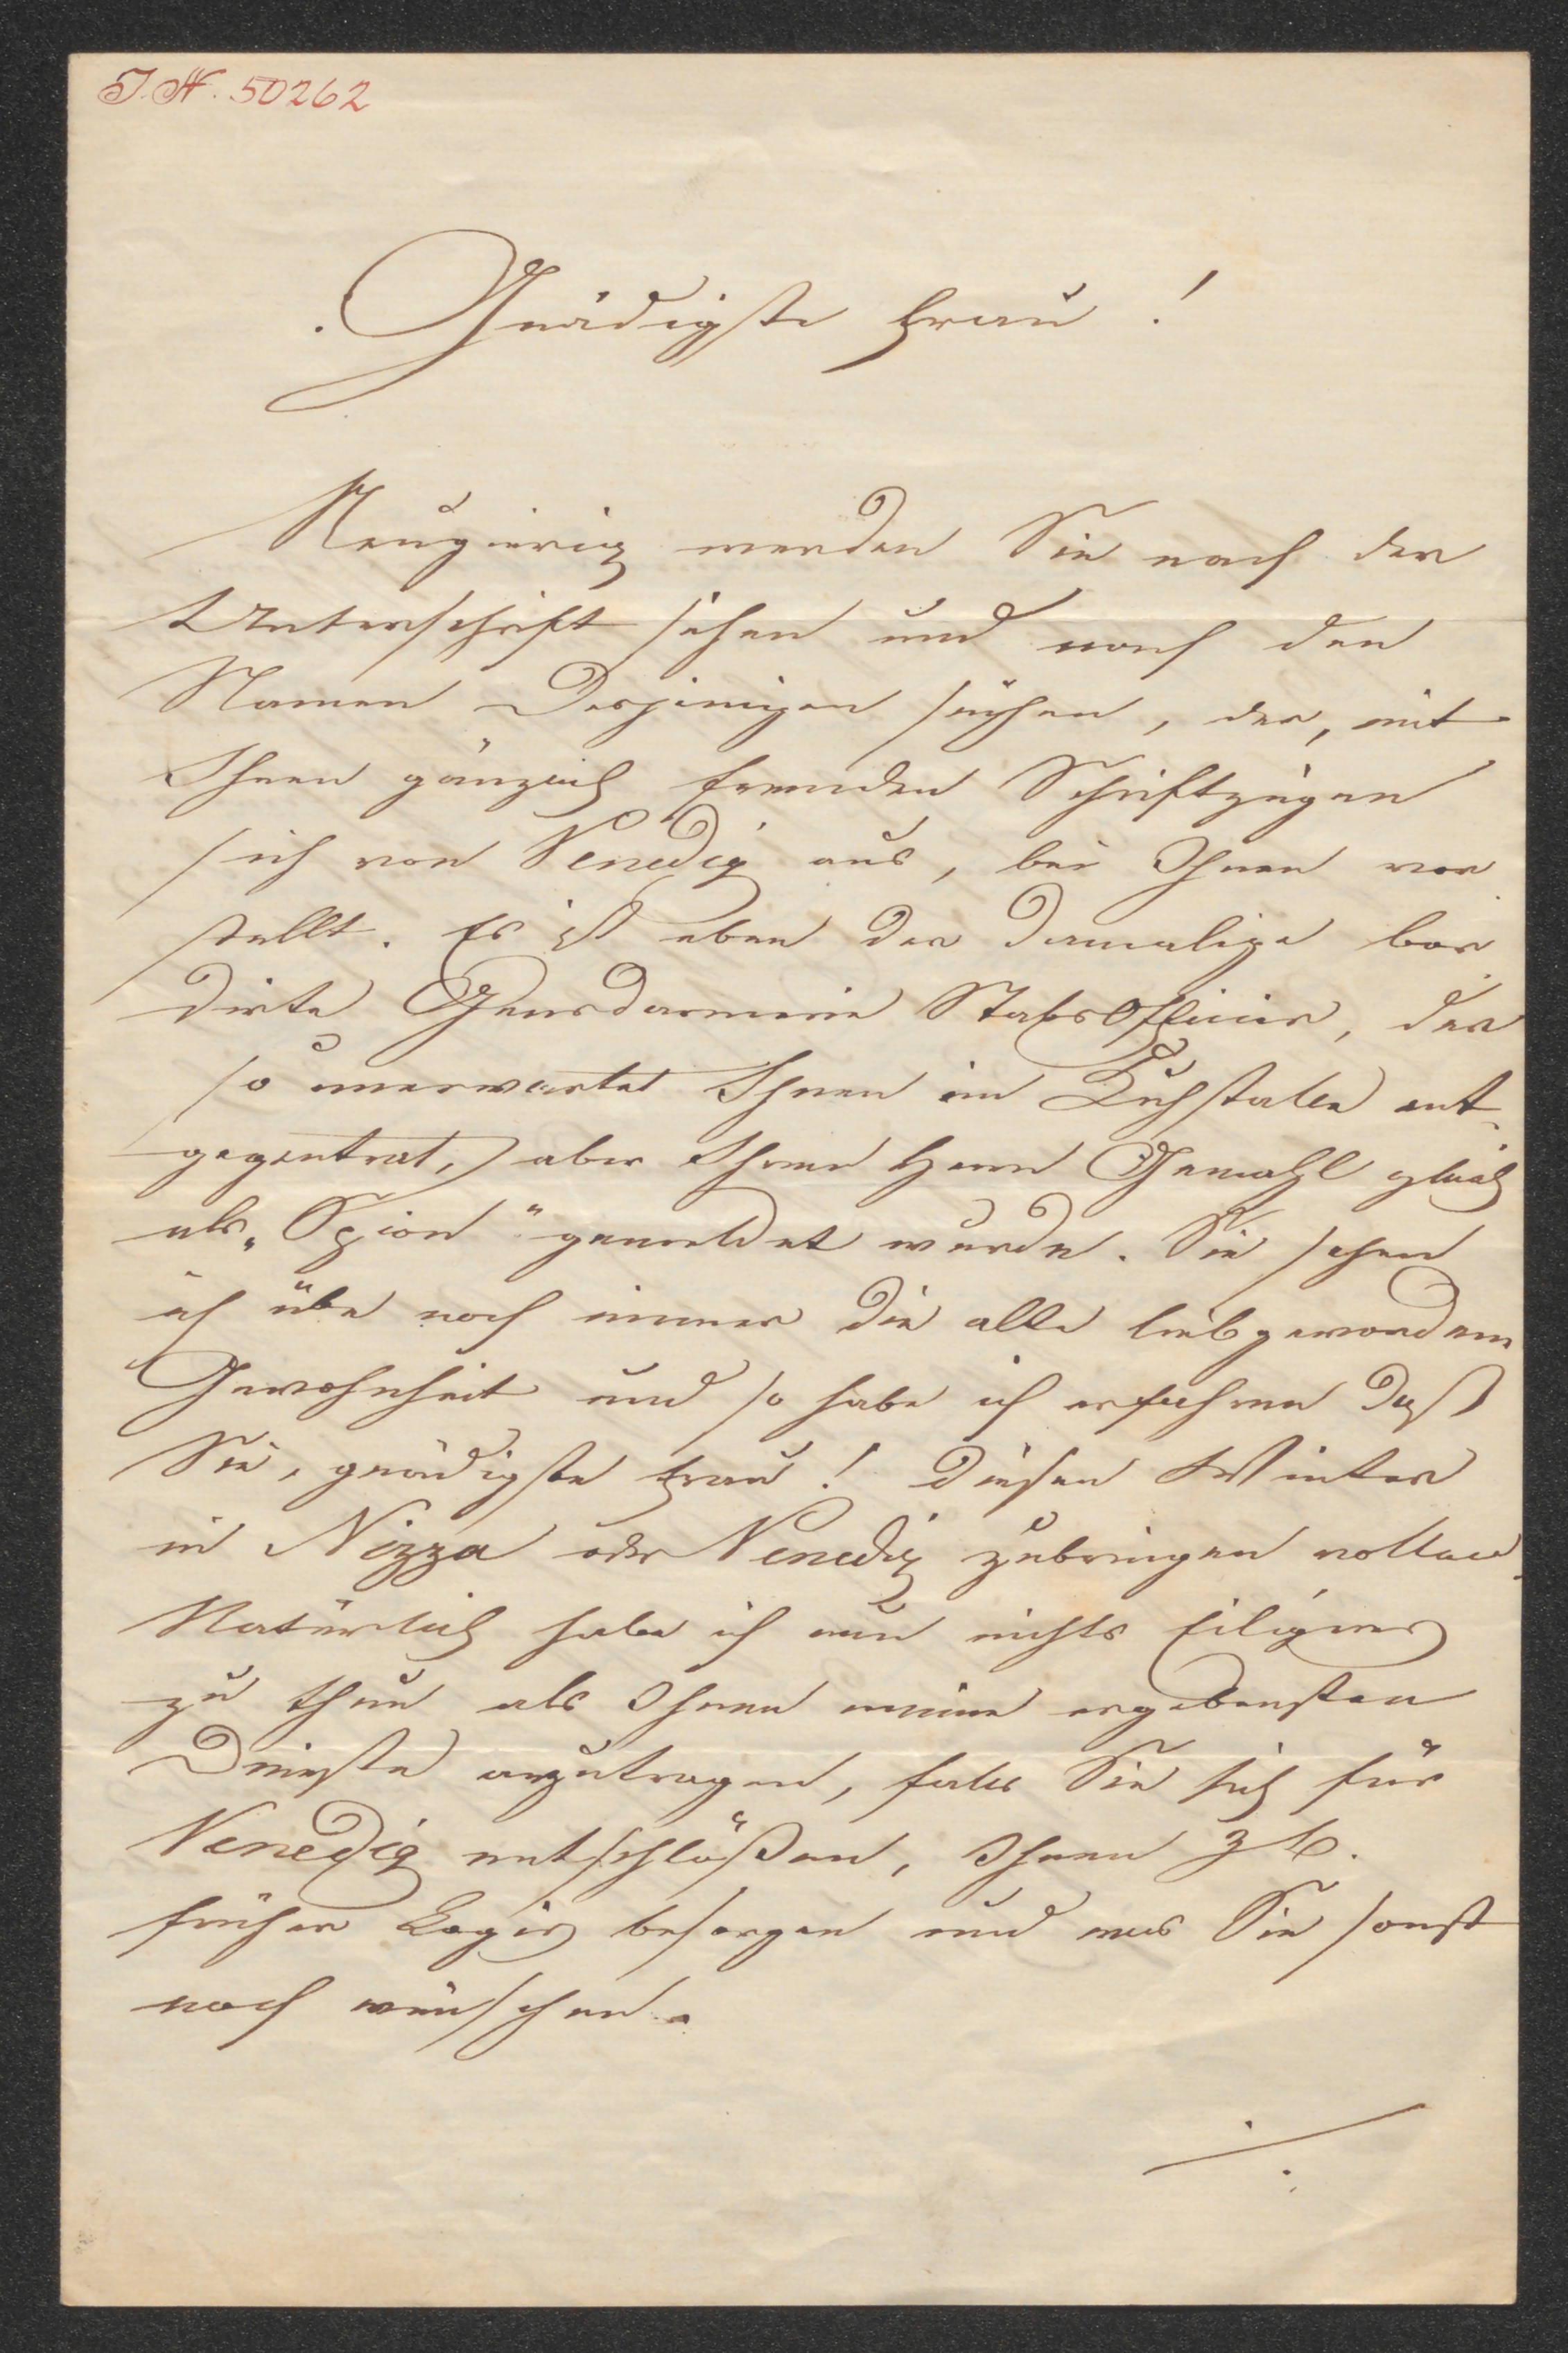 J. N. 50262
Gnädigste Frau!
Neugierig werden Sie nach der
Unterschrift sehen und nach den
Namen Desjenigen suchen, der, mit
Ihnen gänzlich fremden Schriftzügen
sich von Venedig aus, bei Ihnen vor
stellt. Es ist eben der damalige bor
dirte Gensdarmerie Stabsofficier, der
so unerwartet Ihnen im Kuhstalle ent
gegentrat, aber Ihrem Herrn Gemahl gleich
als „Spion" gemeldet wurde. Sie sehen
ich übe noch immer die alte liebgewordene
Gewohnheit und so habe ich erfahren daß
Sie, gnädigste Frau! diesen Winter
in Nizza oder Venedig zubringen wollen.
Natürlich habe ich nun nichts Eiligeres
zu thun als Ihnen meine ergebensten
Dienste anzutragen, falls Sie sich für
Venedig entschlößen, Ihnen z B.
früher Logis besorgen und was Sie sonst
noch wünschen.
./.